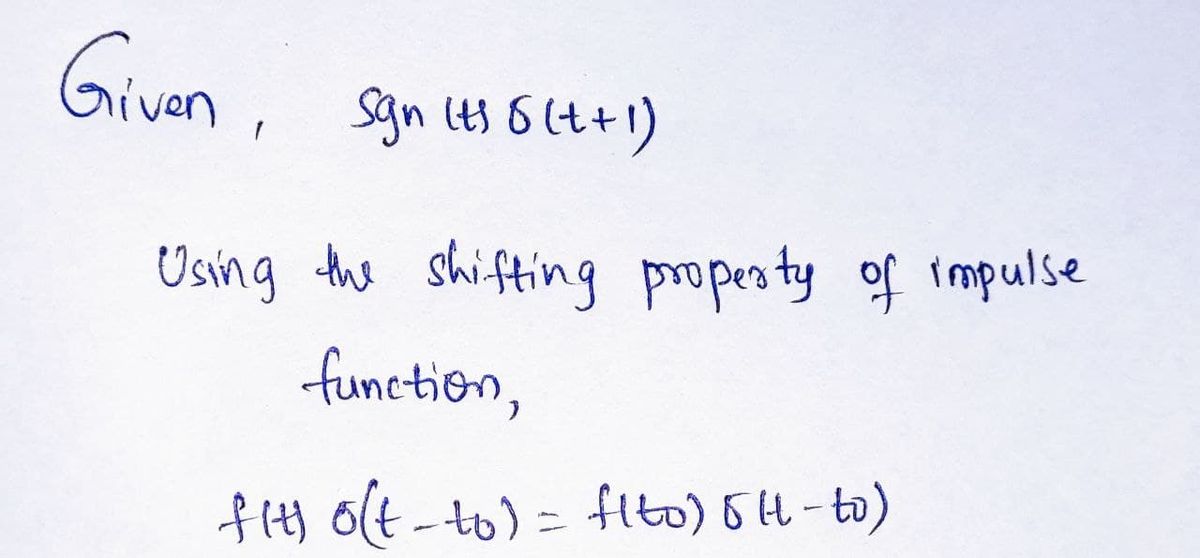 Given, sgn(t) δ(t+1)
Using the shifting property of impulse
function,
f(t) δ(t-to) = f(to) δ(t-to)